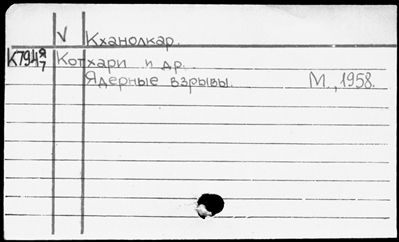 V Кханолкар.
К794 Я/7 Котхари и др.
Ядерные взрывы. М., 1958.